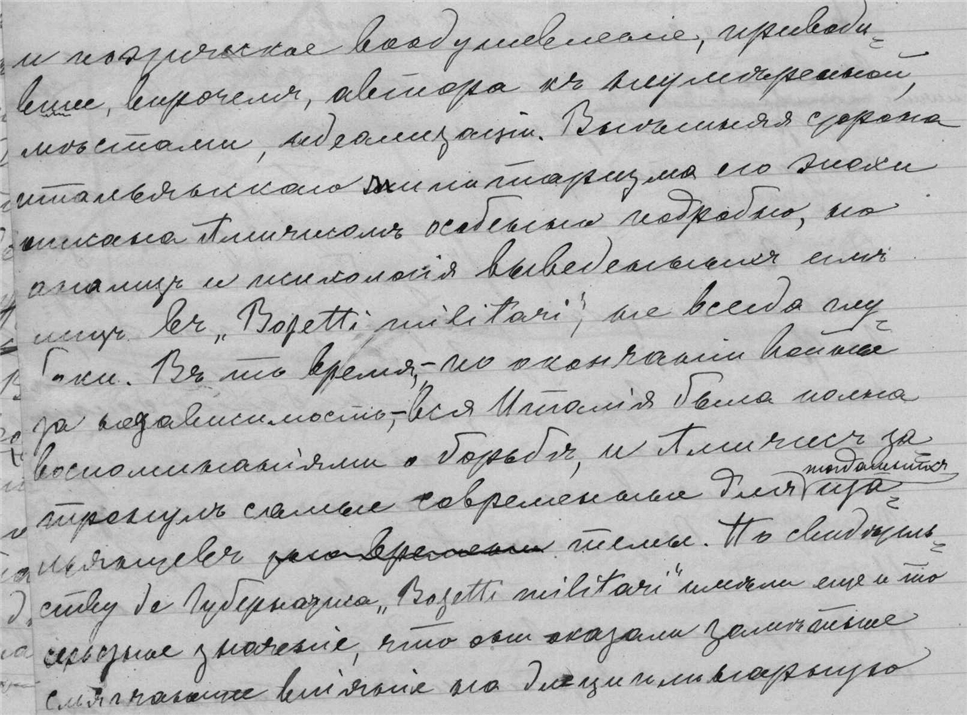 и поэтическое воодушевленіе, приводи-
вшее, впрочемъ, автора къ неумѣренной,
мѣстами, идеализаціи. Внѣшняя сторона
итальянскаго милитаризма его эпохи
описана Амичисомъ особенно подробно, но
анализъ и психологія выведенныхъ имъ
лицъ въ „Bozetti militari", не всегда глу-
боки. Въ то время,—по окончаніи войны
за независимость,—вся Италія была полна
воспоминаніями о борьбѣ, и Амичисъ за-
тронулъ самые современные для тогдашнихъ ита-
льянцевъ темы. По свидѣтель-
ству де Губернатиса „Bozetti militari" имѣли еще и то
серьезное значеніе, что они оказали замѣтное
смягчающее вліяніе на дисциплинарную